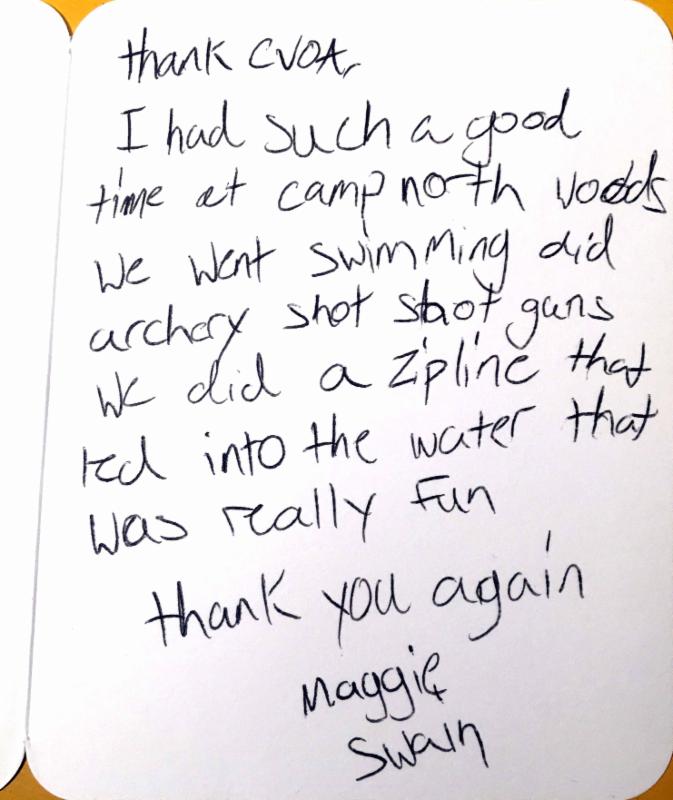 thank CVOA,
I had such a good
time at camp north voods
we went swimming did
archery shot shot guns
we did a zipline that
led into the water that
was really fun
thank you again
Maggie
Swain